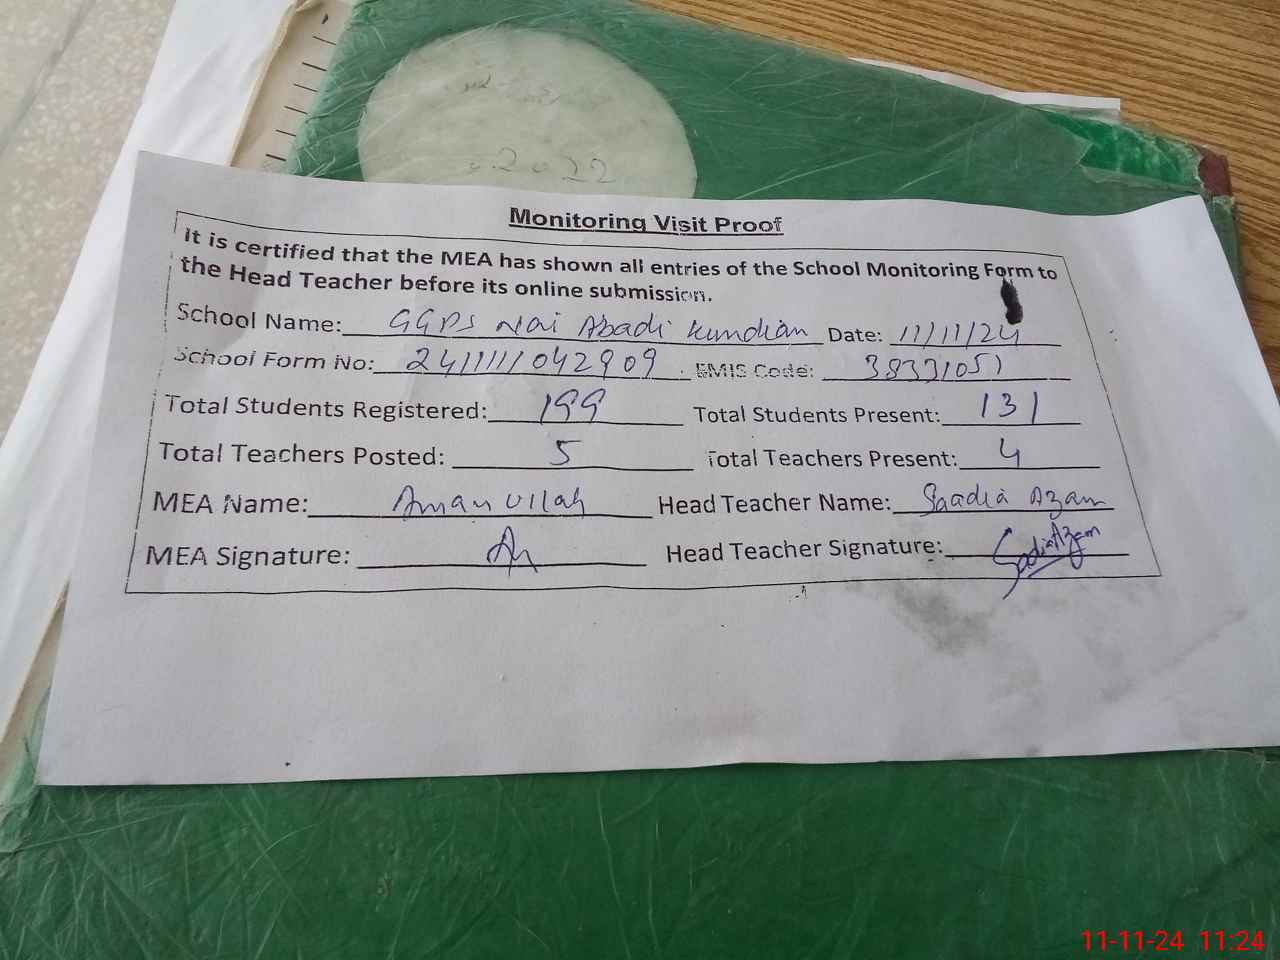 2022
Monitoring Visit Proof
It is certified that the MEA has shown all entries of the School Monitoring Form to
the Head Teacher before its online submission.
School Name: GGPS Nai Abadi Kundian Date: 11/11/24
School Form No: 241111042909 EMIS Code: 38331051
Total Students Registered: 199 Total Students Present: 131
Total Teachers Posted: 5 Total Teachers Present: 4
MEA Name: Aman Ullah Head Teacher Name: Saadia Azam
MEA Signature: Head Teacher Signature: Sadia Azam
11-11-24 11:24